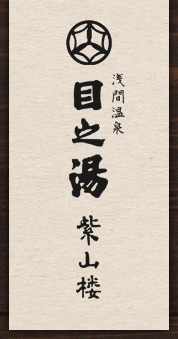 浅間温泉
目之湯
紫山楼